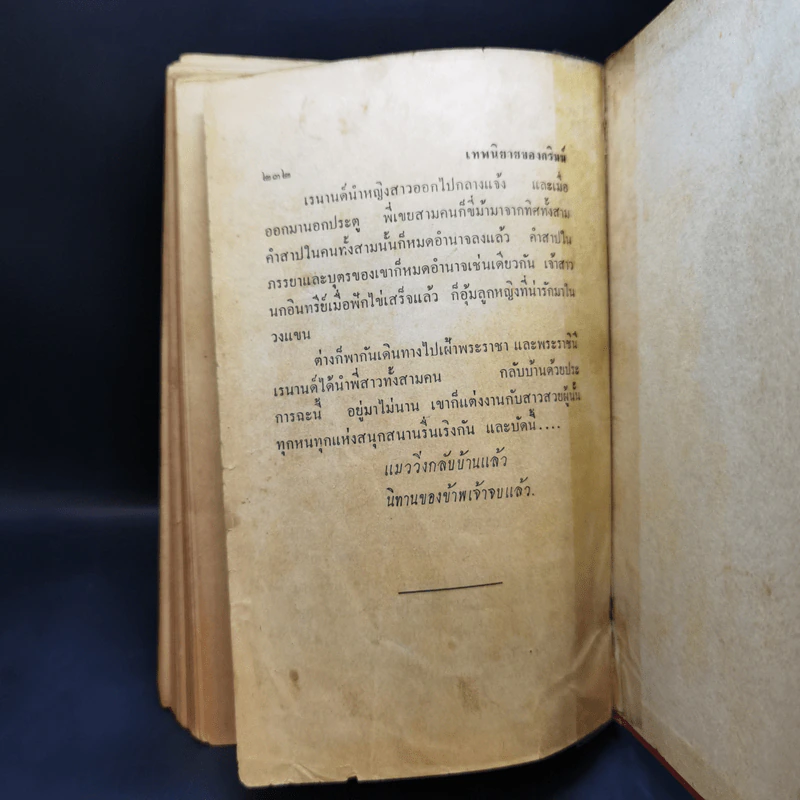 เทพนิยายของกริมม์
๒๓๒
เรนานด์นำหญิงสาวออกไปกลางแจ้ง และเมื่อ
ออกมานอกประตู พี่เขยสามคนก็ขี่ม้ามาจากทิศทั้งสาม
คำสาปในคนทั้งสามนั้นก็หมดอำนาจลงแล้ว คำสาปใน
ภรรยาและบุตรของเขาก็หมดอำนาจเช่นเดียวกัน เจ้าสาว
นกอินทรีย์เมื่อฟักไข่เสร็จแล้ว ก็อุ้มลูกหญิงที่น่ารักมาใน
วงแขน
ต่างก็พากันเดินทางไปเฝ้าพระราชา และพระราชินี
เรนานด์ได้นำพี่สาวทั้งสามคน กลับบ้านด้วยประ
การฉะนี้ อยู่มาไม่นาน เขาก็แต่งงานกับสาวสวยผู้นั้น
ทุกหนทุกแห่งสนุกสนานรื่นเริงกัน และบัดนี้....
แมววิ่งกลับบ้านแล้ว
นิทานของข้าพเจ้าจบแล้ว.